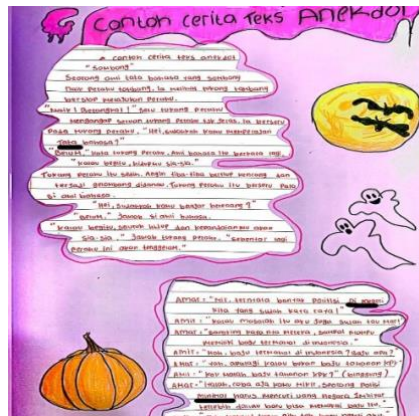 Contoh cerita Teks Anekdot
* contoh cerita teks anekdot
"Sombong"
Seorang ahli tata bahasa yang sombong
naik perahu tambang. Ia melihat tukang tambang
bersiap melajukan perahu.
"Naik! Berangkat!" Seru tukang perahu
menganggap seruan tukang perahu tak jelas. Ia berseru
pada tukang perahu, "Hei, sudahkah kamu mempelajari
tata bahasa?"
"Belum" kata tukang perahu. Ahli bahasa itu berkata lagi,
"kalau begitu, hidupmu sia-sia."
Tukang perahu itu diam. Angin tiba-tiba bertiup kencang dan
terjadi gelombang didanau. Tukang perahu itu berseru pada
si ahli bahasa.
"Hei, sudahkah kamu belajar berenang?"
"Belum." Jawab si ahli bahasa.
"kalau begitu, seluruh hidup dan kepandaianmu akan
sia-sia." Jawab tukang perahu. "Sebentar lagi
perahu ini akan tenggelam."
Amat: "Mi, ternyata banyak politisi di negeri
kita yang sudah kaya raya!"
Amir: "kalau masalah itu aku juga sudah tau Mat!
Amat: "Saking kaya nya mereka, sampai mampu
membeli baju termahal di indonesia."
Amir: "Hah, baju termahal di indonesia? Baju apa?
Amat: "Yah, apalagi kalau bukan baju tahanan KPK
Amir: "koq malah baju tahanan KPK?" (bingung).
Amat: "Iyalah, coba aja kamu mikir, seorang Politi
harus mencuri uang negara
terlebih dahulu baru bisa memakai baju itu.